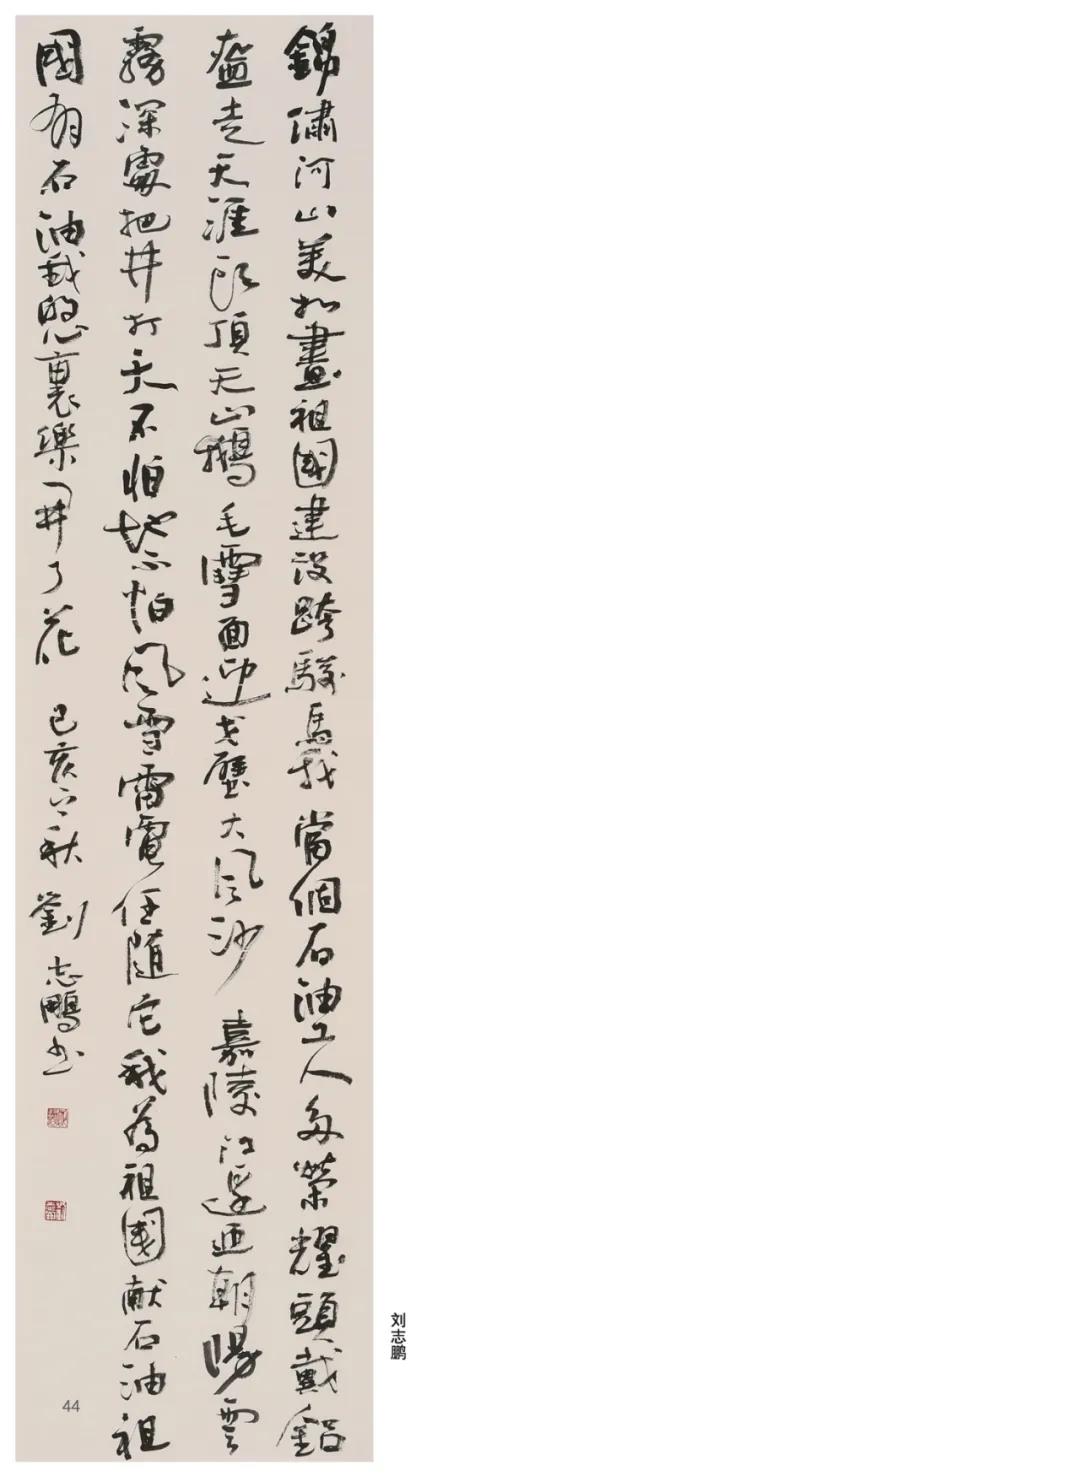 錦繡河山美如畫祖國建設跨駿馬我當個石油工人多榮耀頭戴鋁
盔走天涯頭頂天山鵝毛雪面迎戈壁大風沙嘉陵江邊迎朝陽雲
霧深處把井打天不怕地不怕風雪雷電任隨它我為祖國献石油祖
國有石油我的心裏樂開了花 己亥之秋 劉志鵬书
刘志鹏
44